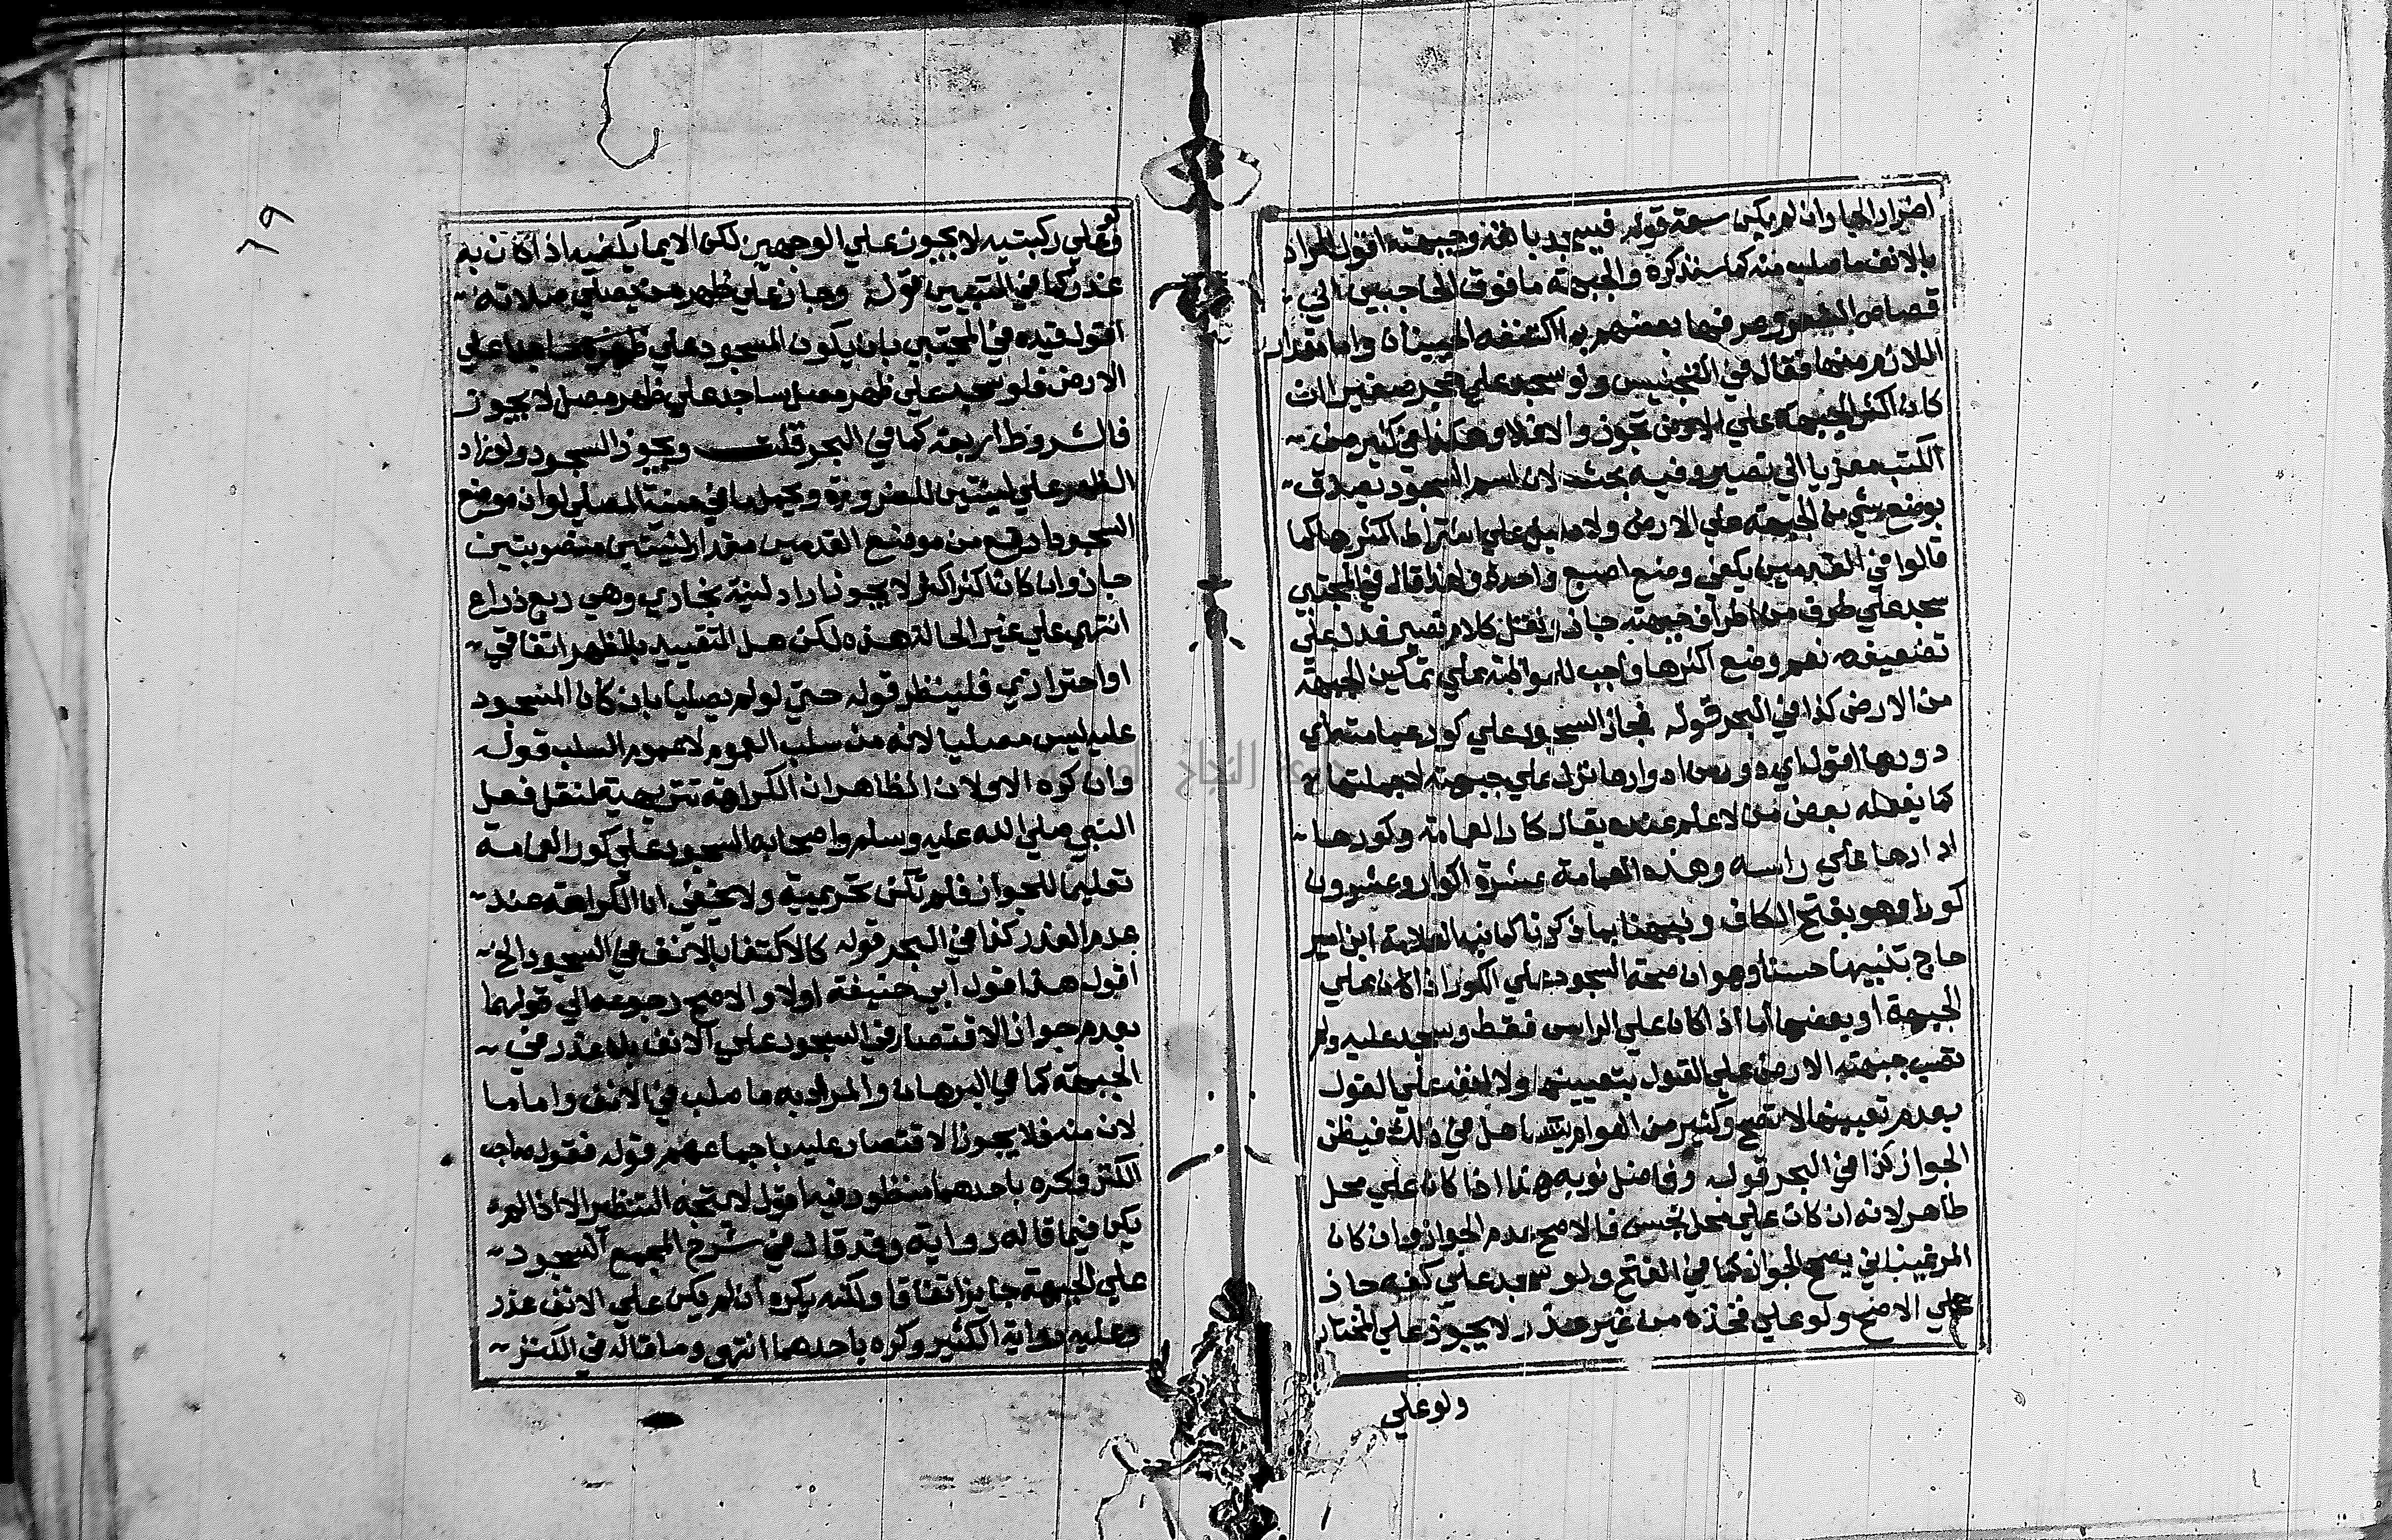 اضرارا لها وان لم يكن سعة قوله فيسجد بانفه وجبهته اقول المراد
بالانف ما صلب منه كما سنذكره والجبهة ما فوق الحاجبين الي
قصاص الشعر وعرفها بعضهم بما اكتنفه الجبينان واما مقدار
اللازم منها فقال في التجنيس ولو سجد علي حجر صغير ان
كان اكثر الجبهة علي الارض تجوز والا فلا وهكذا في كثير من
الكتب معزيا الي نصير وفيه بحث لان اسم السجود يصدق
بوضع شي من الجبهة علي الارض ولا دليل علي اشتراط اكثرها كما
قالوا في القدمين يكفي وضع اصبع واحدة ولهذا قال في المجتبي
سجد علي طرف من اطراف جبهته جاز ثم نقل كلام نصير فدل علي
تضعيفه نعم وضع اكثرها واجب للمواظبة علي تمكين الجبهة
من الارض كذا في البحر قوله فجاز السجود علي كور عمامته اي
دورها اقول اي دور من ادوارها نزل علي جبهته لا جملتها
كما يفعله بعض من لا علم عنده يقال كار العمامة وكورها
ادارها علي راسه وهذه العمامة عشرة اكوار وعشرون
كورا وهو بفتح الكاف ونبهنا بما ذكرنا كما نبه العلامة ابن امير
حاج تنبيها حسنا وهو ان صحة السجود علي الكور اذا كان علي
الجبهة او بعضها اما اذا كان علي الراس فقط وسجد عليه ولم
تصب جبهته الارض علي القول بتعيينها ولا انفه علي القول
بعدم تعيينها لا تصح وكثير من العوام يتساهل في ذلك فيظن
الجواز كذا في البحر قوله وفاضل ثوبه هذا اذا كان علي محل
طاهر لانه ان كان علي محل نجس فالاصح عدم الجواز وان كان
المرغيناني يصحح الجواز كما في الفتح ولو سجد علي كفه جاز
علي الاصح ولو علي فخذه من غير عذر لا يجوز علي المختار
ولو علي
٦٩
ولو علي ركبتيه لا يجوز علي الوجهين لكن الايما يكفيه اذا كان به
عذر كما في التبيين قوله وجاز علي ظهر من يصلي صلاته
اقول قيده في المجتبي بان يكون المسجود علي ظهره ساجدا علي
الارض فلو سجد علي ظهر مصل ساجد علي ظهر مصل لا يجوز
فالشروط اربعة كما في البحر قلت ويجوز السجود ولو زاد
الظهر علي لبنتين للضرورة ويحمل ما في منية المصلي لو ان موضع
السجود ارفع من موضع القدمين مقدار لبنتين منصوبتين
جاز وان كان اكثر لا يجوز اراد لبنة بخاري وهي ربع ذراع
انتهي علي غير الحالة هذه لكن هل التقييد بالظهر اتفاقي
او احترازي فلينظر قوله حتي لو لم يصليا بان كان المسجود
عليه ليس مصليا لانه من سلب العموم لا عموم السلب قوله
وان كره الاولان الظاهر ان الكراهة تنزيهية لنقل فعل
النبي صلي الله عليه وسلم واصحابه السجود علي كور العمامة
تعليما للجواز فلم تكن تحريمية ولا يخفي ان الكراهة عند
عدم العذر كذا في البحر قوله كالاكتفا بالانف في السجود الخ
اقول هذا قول ابي حنيفة اولا والاصح رجوعه الي قولهما
بعدم جواز الاقتصار في السجود علي الانف بلا عذر في
الجبهة كما في البرهان والمراد به ما صلب في الانف واما ما
لان منه فلا يجوز الاقتصار عليه باجماعهم قوله فقول صاحب
الكنز وكره باحدهما منظور فيه اقول لا يتجه التنظير الا اذا لم
يكن فيما قاله رواية وقد قال في شرح المجمع السجود
علي الجبهة جايز اتفاقا ولكنه يكره ان لم يكن علي الانف عذر
وعليه رواية الكنز وكره باحدهما انتهي وما قاله في الكنز